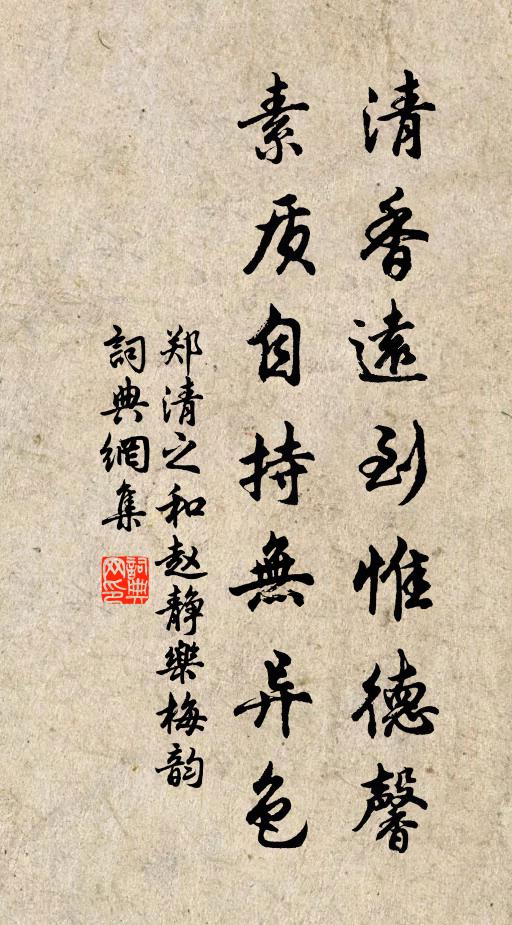 清香遠到惟德馨
素质自持無异色
郑清之和赵静樂梅韵
詞典網集
詞典网印